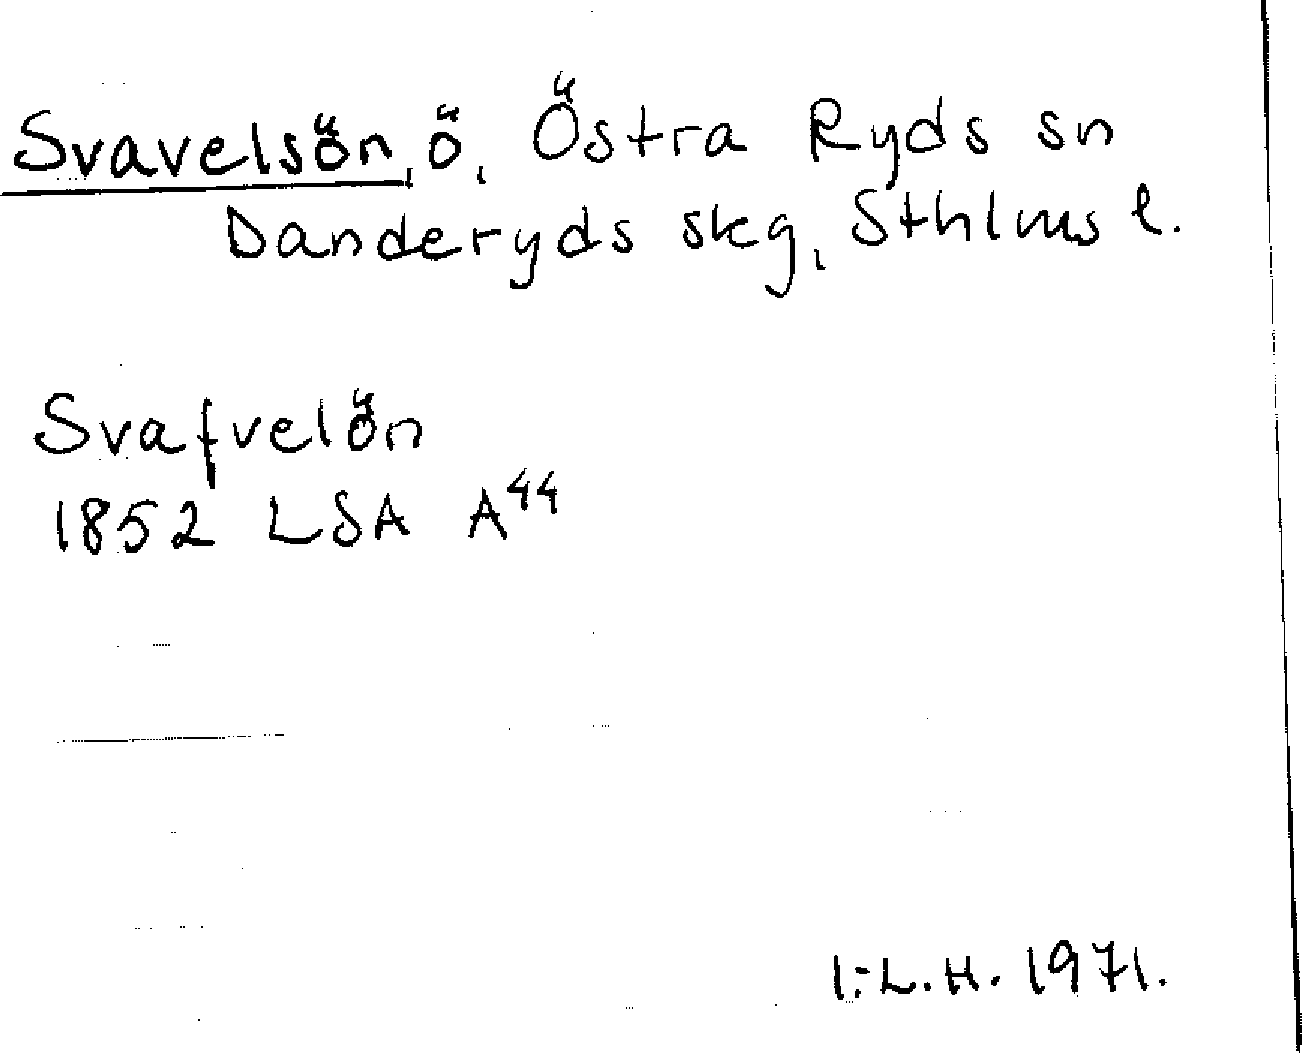 Svavelsön, ö, Östra Ryds sn
Danderyds skg, Sthlms l.
Svafvelön
1852 LSA A44
I.-L.H. 1971.